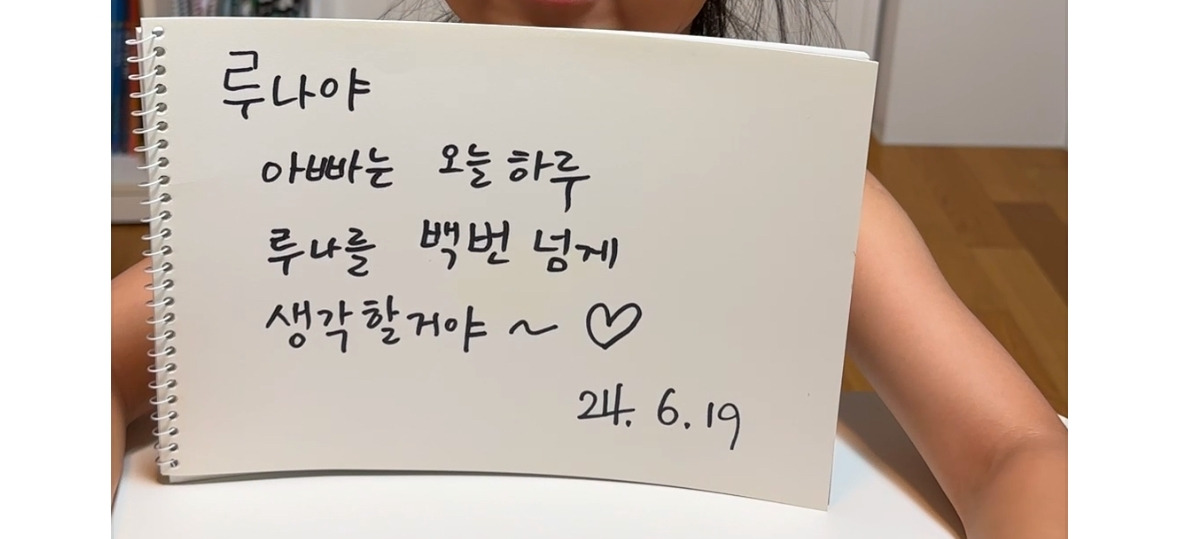 루나야
아빠는 오늘 하루
루나를 백번 넘게
생각할거야 ~ ♡
24. 6. 19